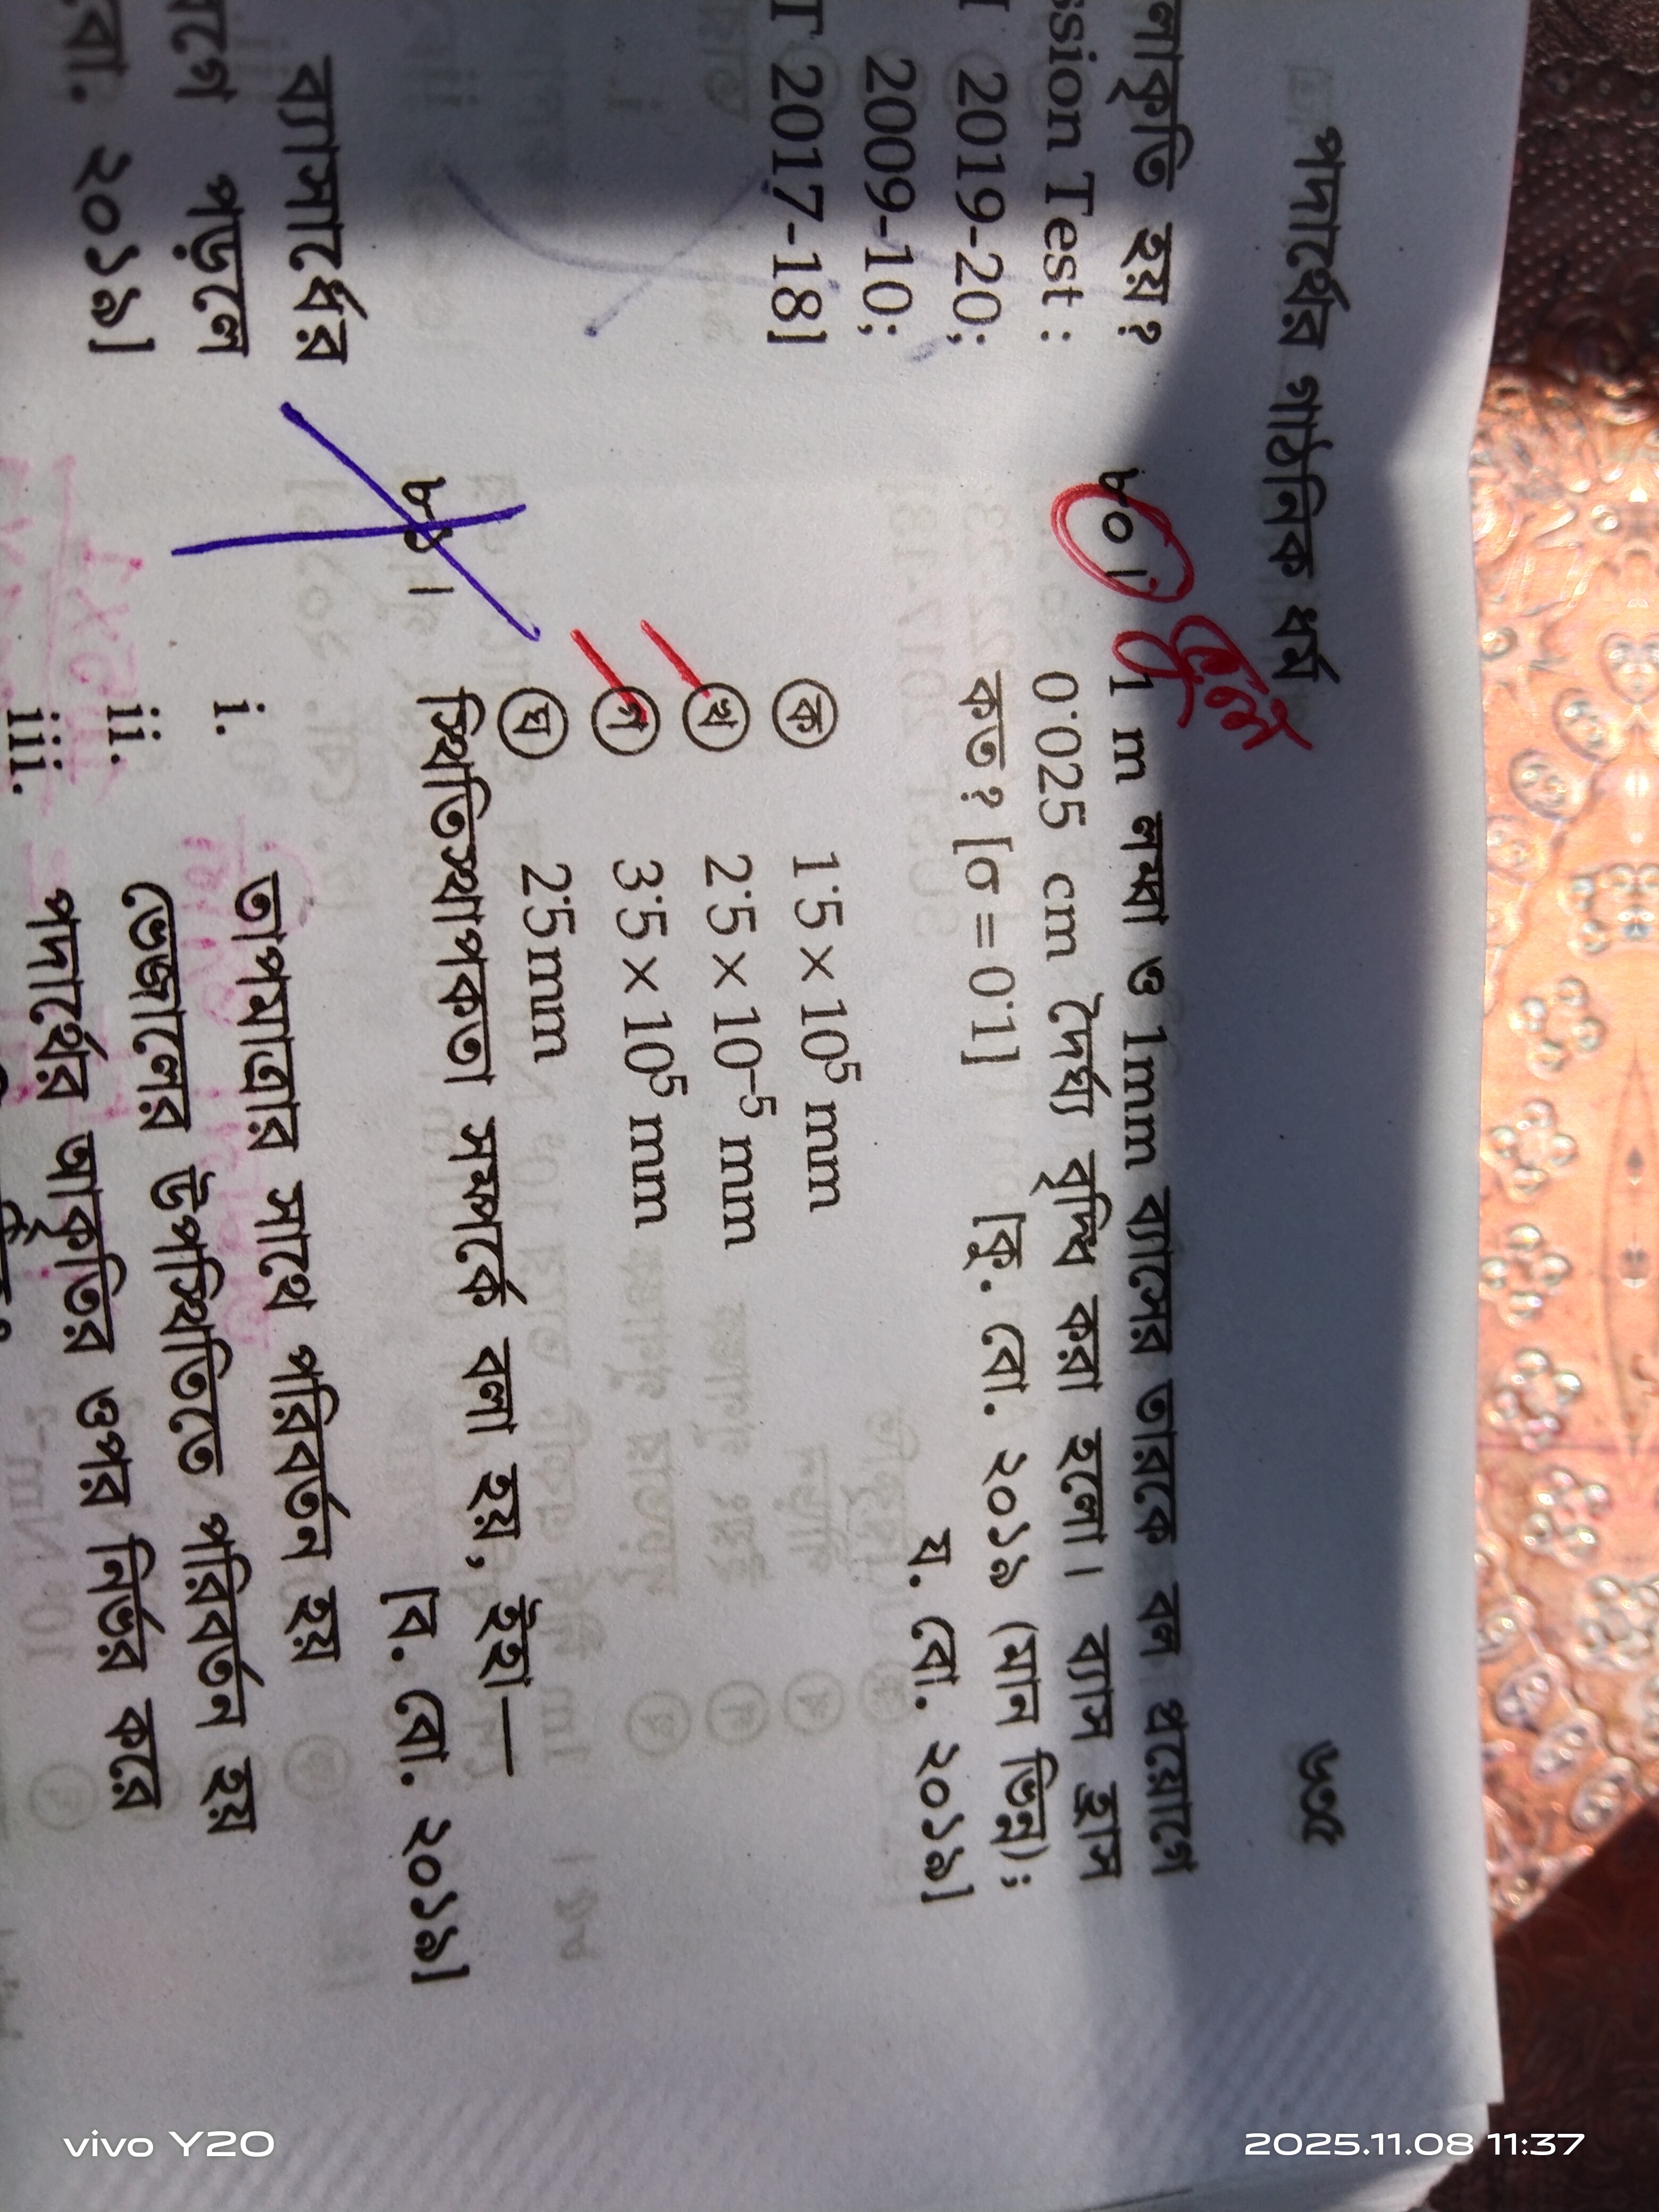 পদার্থের গাঠনিক ধর্ম
৬৩৫
লাকৃতি হয়?
ssion Test :
2019-20;
2009-10;
T 2017-18]
ব্যাসার্ধের
পড়লে
বো. ২০১৯]
৮০।
ভুল
1 m লম্বা ও 1mm ব্যাসের তারকে বল প্রয়োগে
0·025 cm দৈর্ঘ্য বৃদ্ধি করা হলো। ব্যাস হ্রাস
কত? [σ = 0·1] [কু. বো. ২০১৯ (মান ভিন্ন);
য. বো. ২০১৯]
ক 1·5 × 10⁵ mm
খ 2·5 × 10⁻⁵ mm
গ 3·5 × 10⁵ mm
ঘ 25mm
৮১। স্থিতিস্থাপকতা সম্পর্কে বলা হয়, ইহা—
[ব. বো. ২০১৯]
i. তাপমাত্রার সাথে পরিবর্তন হয়
ii. ভেজালের উপস্থিতিতে পরিবর্তন হয়
iii. পদার্থের আকৃতির ওপর নির্ভর করে
vivo Y20
2025.11.08 11:37